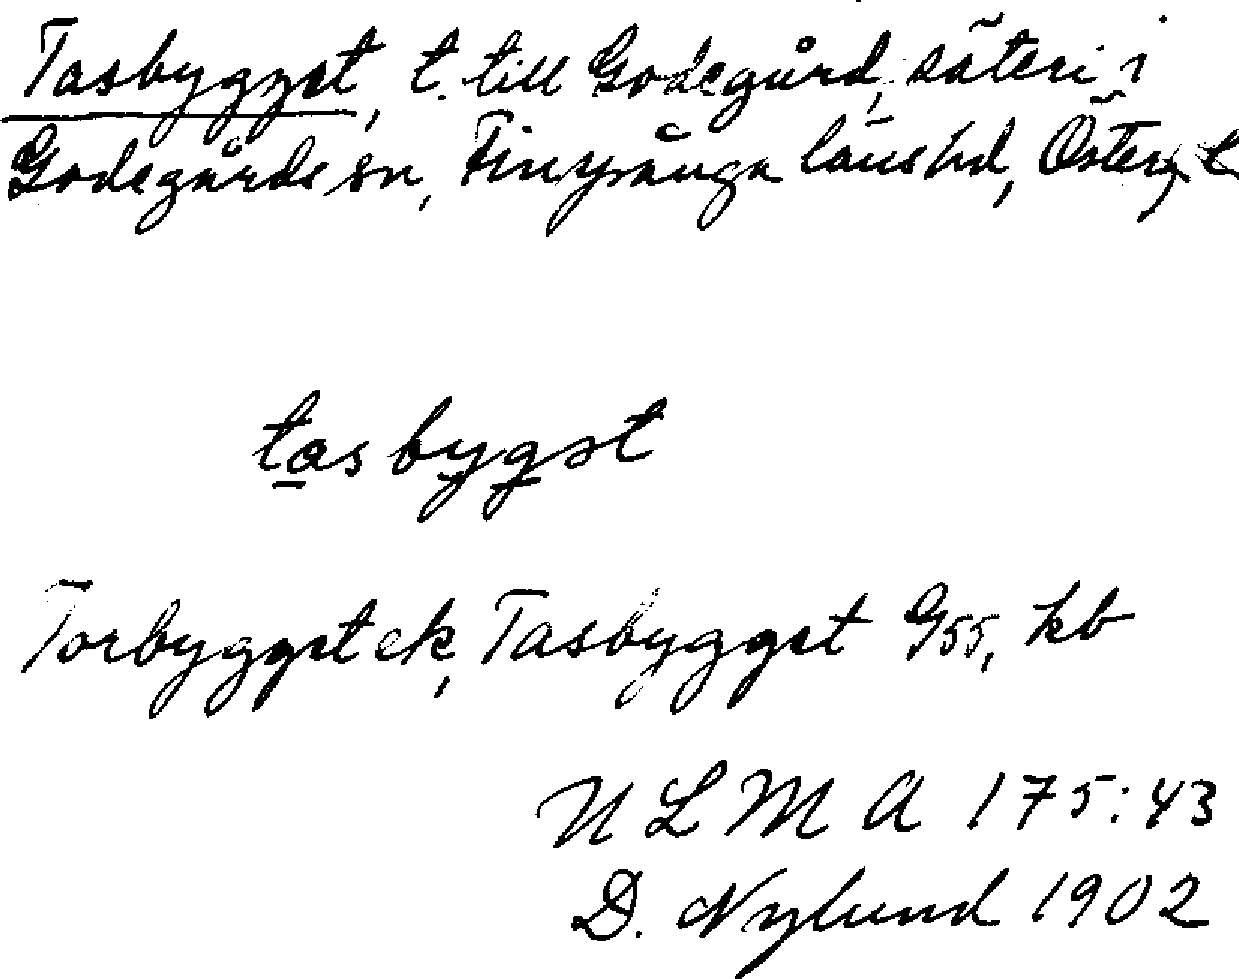 Tasbygget, t. till Godegård, säteri i
Godegårds sn, Finspånga läns hd, Östergötl
tasbygət
Torbygget ek, Tasbygget G55, kb
ULMA 175:43
D. Nylund 1902